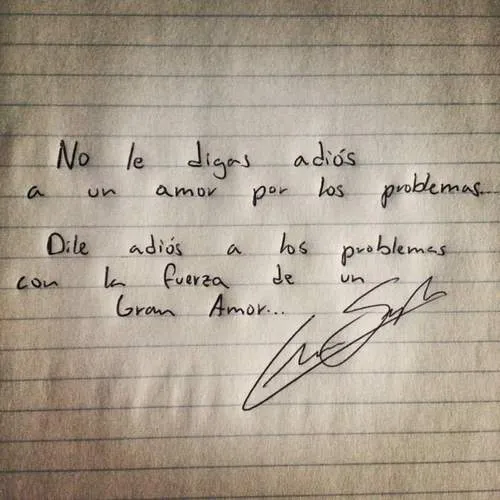 No le digas adiós
a un amor por los problemas...
Dile adiós a los problemas
con la fuerza de un
Gran Amor...